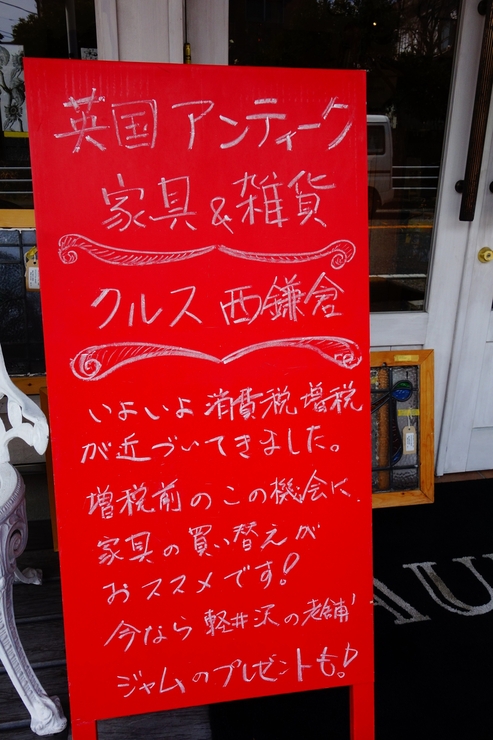 英国アンティーク
家具&雑貨
クルス 西鎌倉
いよいよ消費税増税
が近づいてきました。
増税前のこの機会に、
家具の買い替えが
おススメです!
今なら軽井沢の老舗
ジャムのプレゼントも!
AU